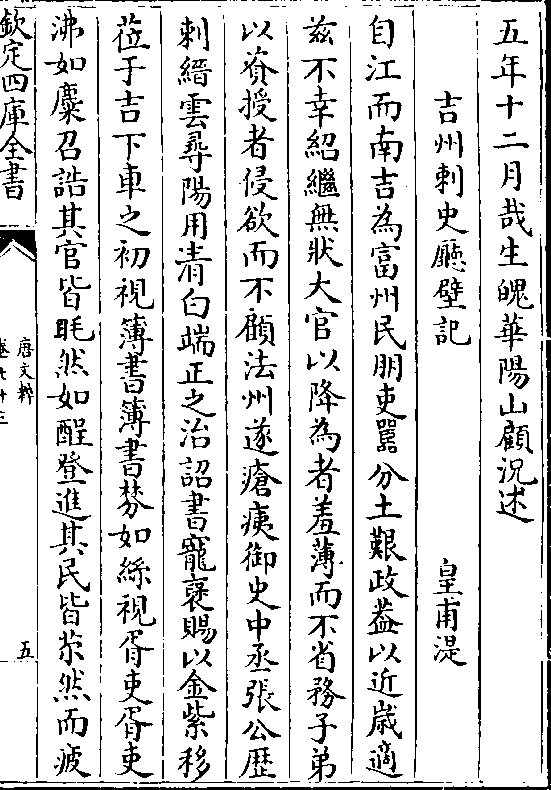 五年十二月哉生魄華陽山顧況述
吉州刺史廳壁記 皇甫湜
自江而南吉為富州民朋吏嚚分土艱政葢以近歲適
兹不幸紹繼無狀大官以降為者羞薄而不省務子弟
以資授者侵欲而不顧法州遂瘡痍御史中丞張公歴
刺縉雲尋陽用清白端正之治詔書寵褒賜以金紫移
莅于吉下車之初視簿書簿書棼如絲視胥吏胥吏
沸如麋召誥其官皆眊然如酲登進其民皆苶然而疲
欽定四庫全書
唐文粹
五